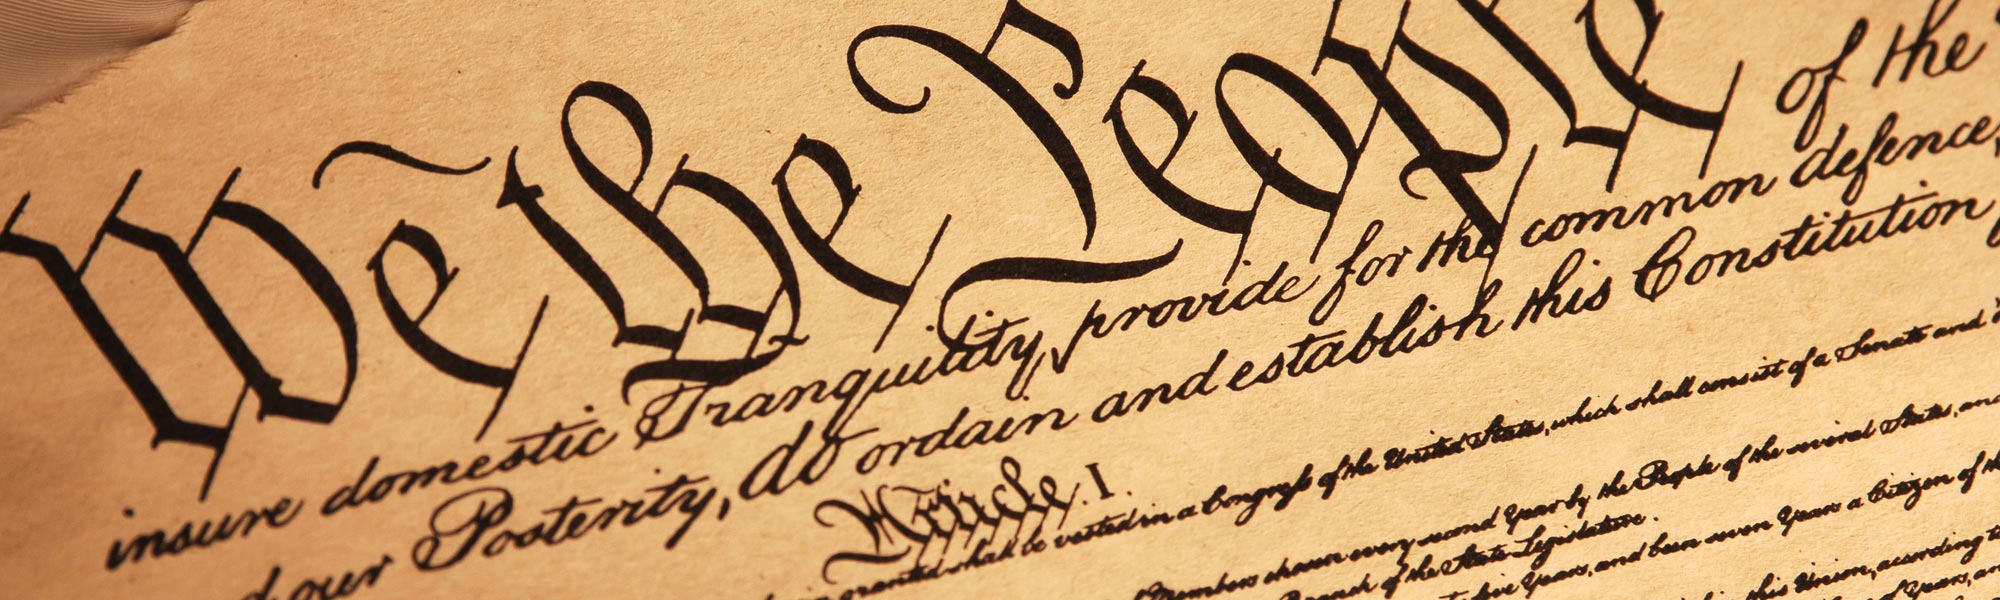 We the People of the
insure domestic Tranquility, provide for the common defence,
our Posterity, do ordain and establish this Constitution
Article. I.
granted shall be vested in a Congreſs of the United States, which shall consist of a Senate and
Members chosen every second Year by the People of the several States, and
Branch of the State Legislature.
five Years, and been seven Years a Citizen of the
this Union, according to
of Years, an